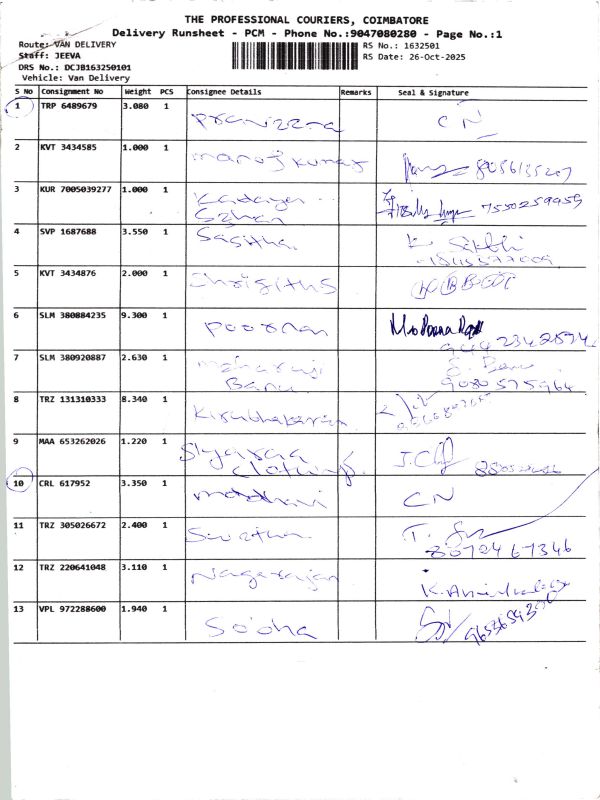 THE PROFESSIONAL COURIERS, COIMBATORE
Delivery Runsheet - PCM - Phone No.:9047080280 - Page No.:1
Route: VAN DELIVERY
RS No.: 1632501
Staff: JEEVA
RS Date: 26-Oct-2025
DRS No.: DCJB163250101
Vehicle: Van Delivery
S No Consignment No Weight PCS Consignee Details Remarks Seal & Signature
1 TRP 6489679 3.080 1 CN
2 KVT 3434585 1.000 1 manoj kumar
3 KUR 7005039277 1.000 1 7550259959
4 SVP 1687688 3.550 1 Sasitha. K. Sakthi
5 KVT 3434876 2.000 1
6 SLM 380884235 9.300 1 Pooran
7 SLM 380920887 2.630 1 maharaji
Banu. S. Banu
9080575964
8 TRZ 131310333 8.340 1 Kirubhakaran.
9 MAA 653262026 1.220 1 Clothing
10 CRL 617952 3.350 1 madhavi CN
11 TRZ 305026672 2.400 1 Swetha.
8070467346
12 TRZ 220641048 3.110 1 Nagarajan
13 VPL 972288600 1.940 1 Sobha